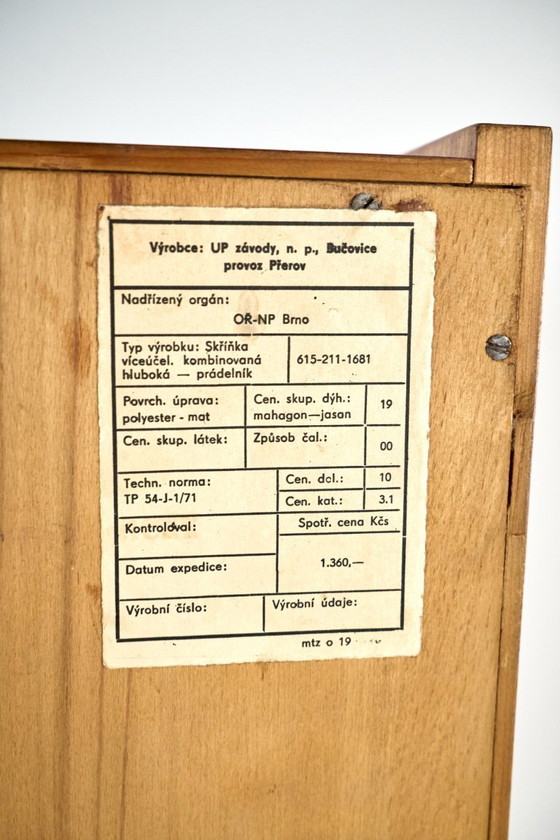 Výrobce: UP závody, n. p., Bučovice
provoz Přerov
Nadřízený orgán:
OŘ-NP Brno
Typ výrobku: Skříňka
víceúčel. kombinovaná
hluboká — prádelník
615-211-1681
Povrch. úprava:
polyester - mat
Cen. skup. dýh.:
mahagon—jasan
19
Cen. skup. látek:
Způsob čal.:
00
Techn. norma:
TP 54-J-1/71
Cen. dcl.:
10
Cen. kat.:
3.1
Kontroloval:
Spotř. cena Kčs
1.360,—
Datum expedice:
Výrobní číslo:
Výrobní údaje:
mtz o 19